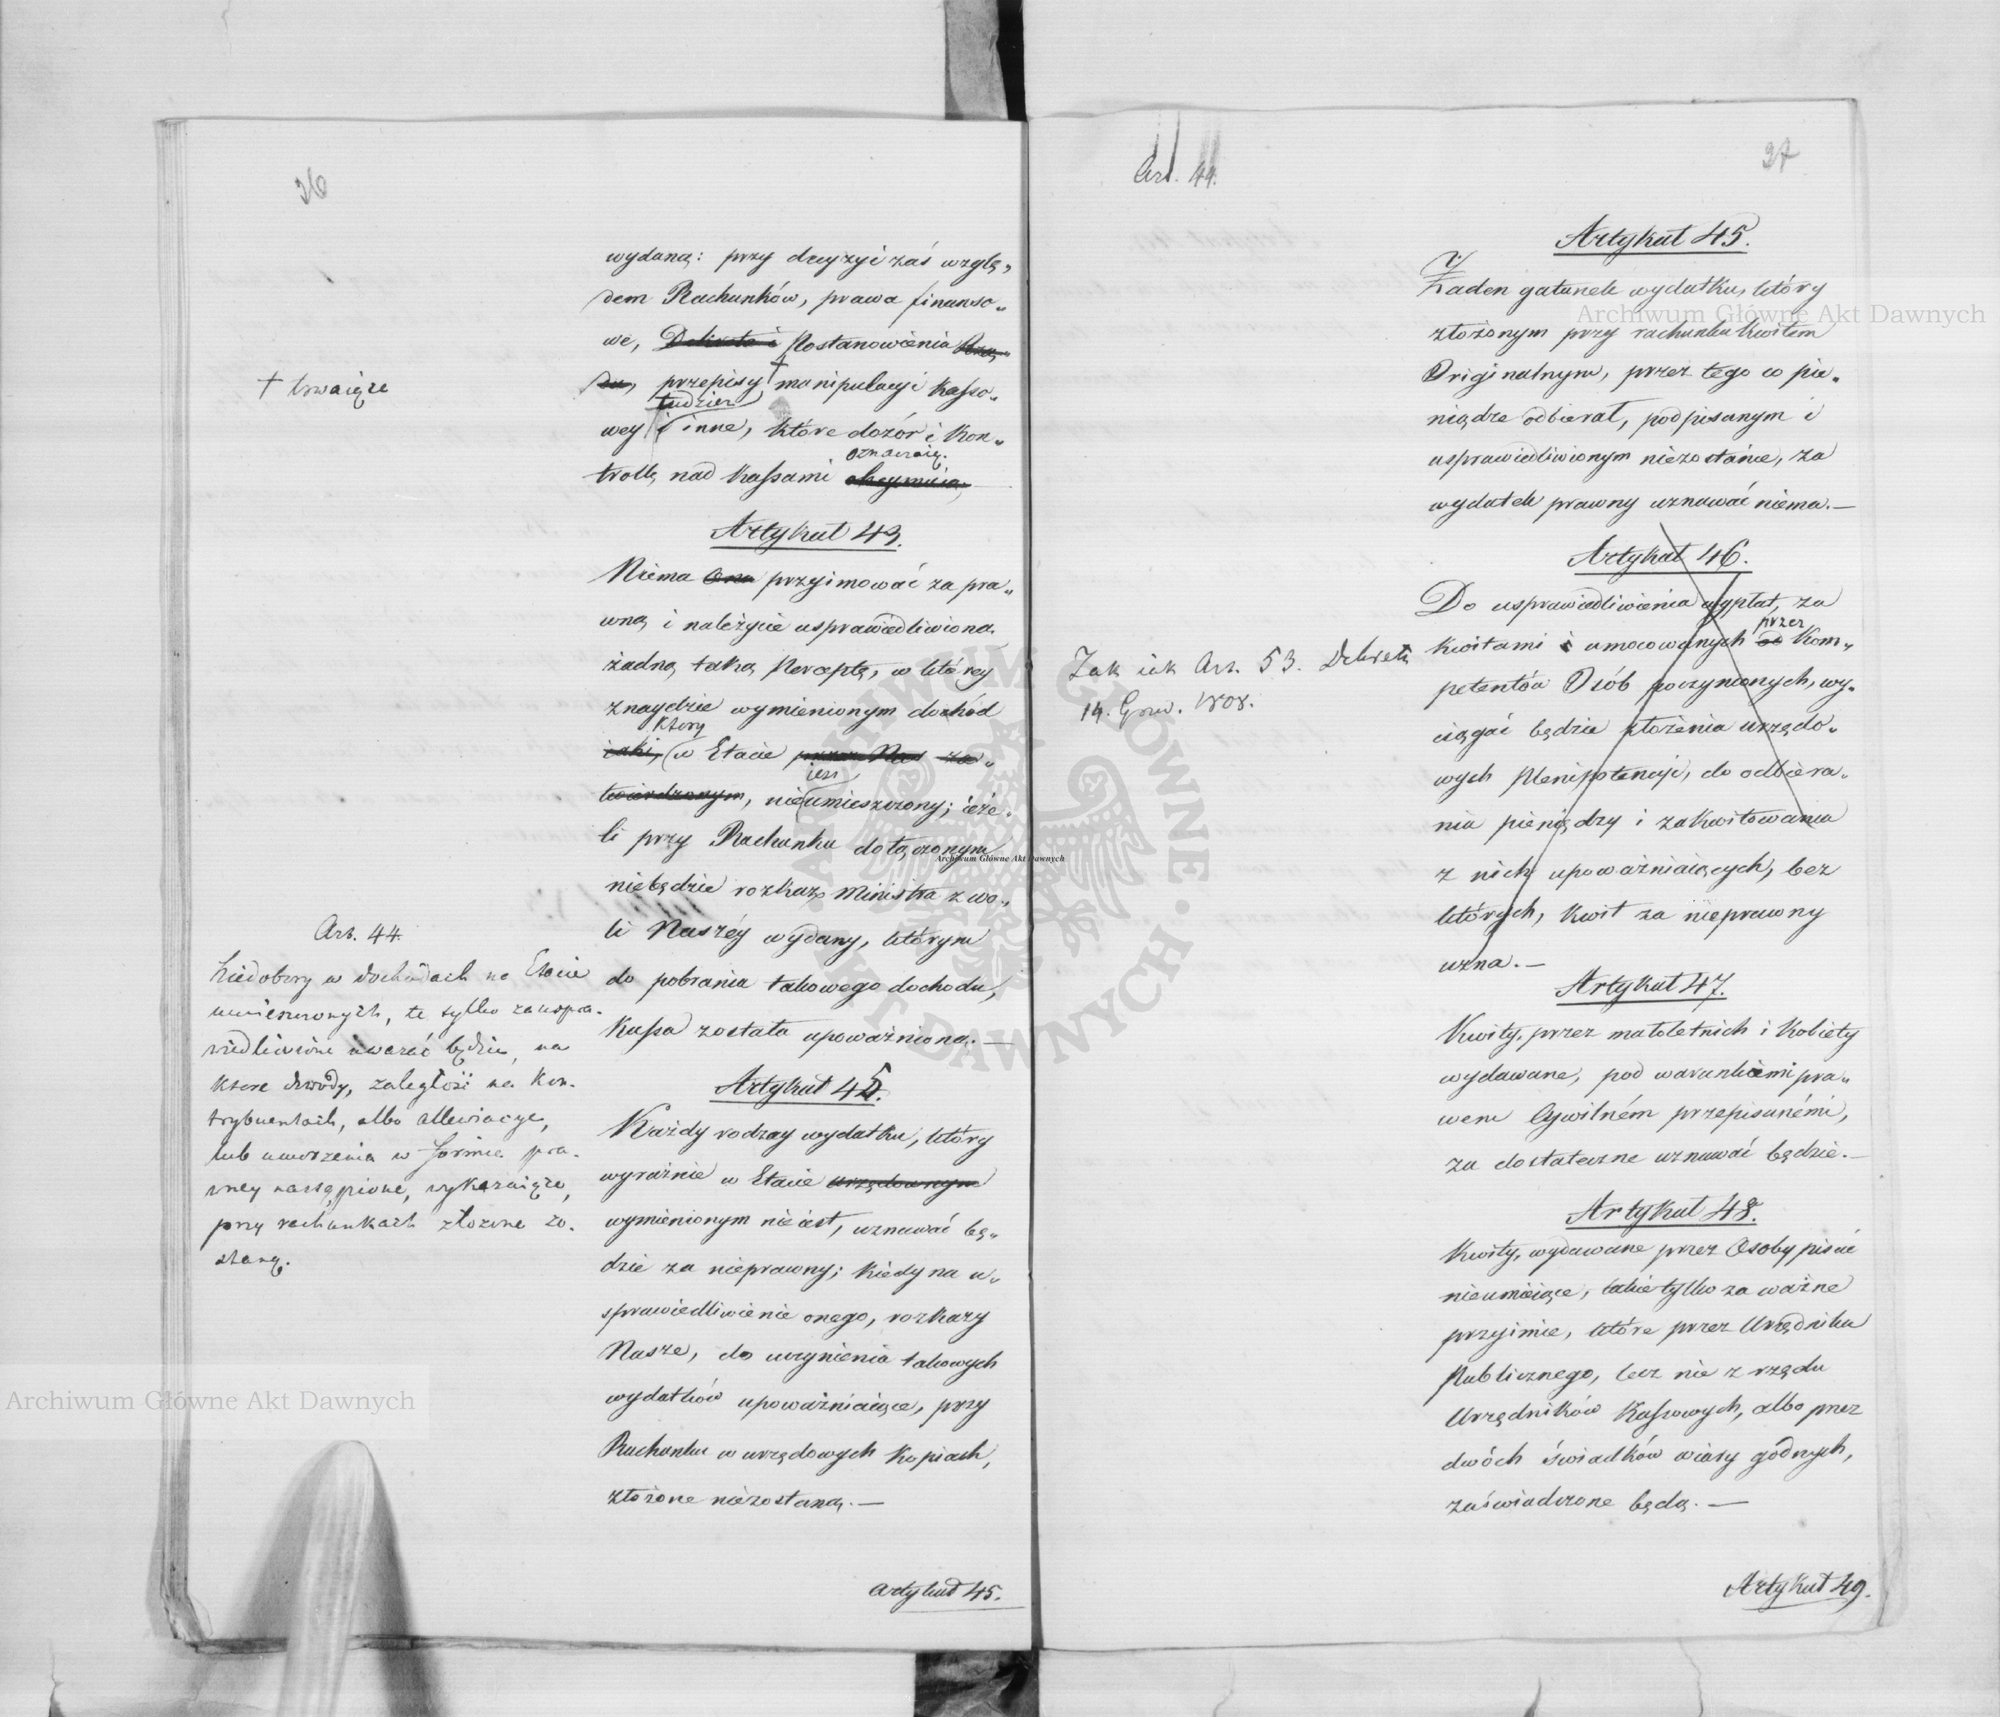 26
wydaną: przy decyzyi zaś wzglę„
dem Rachunków, prawa finanso„
we, Dekreta i Postanowienia Rzą„
du, przepisy † manipulacyi Kasso„
tudzież
wey i inne, które dozór i Kon„
oznaczaią.
trollę nad Kassami obeymuią,
† trwaiące
Artykuł 43.
Niema Ona przyimować za pra„
wną i należycie usprawiedliwioną
żadną taką Perceptę, w którey
znaydzie wymienionym dochód
który
iaki, w Etacie przez Nas za„
iest
twierdzonym, nieumieszczony; ieże„
li przy Rachunku dołączonym
niebędzie rozkaz Ministra z wo„
li Naszéy wydany, którym
do pobrania takowego dochodu,
Kassa została upoważnioną. —
Art. 44.
Niedobory w dochodach na Etacie
umieszczonych, te tylko za uspra-
wiedliwione uważać będzie, na
które dowody, zaległość na Kon-
trybuentach, albo allewiacye,
lub umorzenia w formie pra-
wney nastąpione, wykazuiące,
przy rachunkach złożone zo-
staną.
Artykuł 45.
Każdy rodzay wydatku, który
wyraźnie w Etacie urzędownym
wymienionym nieiest, uznawać bę„
dzie za nieprawny; kiedy na u„
sprawiedliwienie onego, rozkazy
Nasze, do uczynienia takowych
wydatków upoważniaiące, przy
Rachunku w urzędowych kopiach,
złożone niezostaną. —
Artykuł 45.
Art. 44.
27
Artykuł 45.
Żaden gatunek wydatku, który
złożonym przy rachunku Kwitem
Originalnym, przez tego co pie„
niądze odbierał, podpisanym i
usprawiedliwionym niezostanie, za
wydatek prawny uznawać niema. —
Artykuł 46.
Do usprawiedliwienia wypłat, za
przez
Kwitami i umocowanych od Kom„
petentów Osób poczynionych, wy„
ciągać będzie złożenia urzędo„
wych Plenipotencyi, do odbiera„
nia pieniędzy i zakwitowania
z nich upoważniaiących, bez
których, Kwit za nieprawny
uzna. —
Tak iak Art. 53. Dekretu
14. Grud. 1808.
Artykuł 47.
Kwity, przez małoletnich i Kobiety
wydawane, pod warunkiami pra„
wem Cywilném przepisanémi,
za dostateczne uznawać będzie. —
Artykuł 48.
Kwity, wydawane przez Osoby pisać
nieumieiące, takie tylko za ważne
przyimie, które przez Urzędnika
Publicznego, lecz nie z rzędu
Urzędników Kassowych, albo przez
dwóch świadków wiary godnych,
zaświadczone będą. —
Artykuł 49.
Archiwum Główne Akt Dawnych
Archiwum Główne Akt Dawnych
Archiwum Główne Akt Dawnych
ARCHIWUM GŁÓWNE · AKT DAWNYCH ·